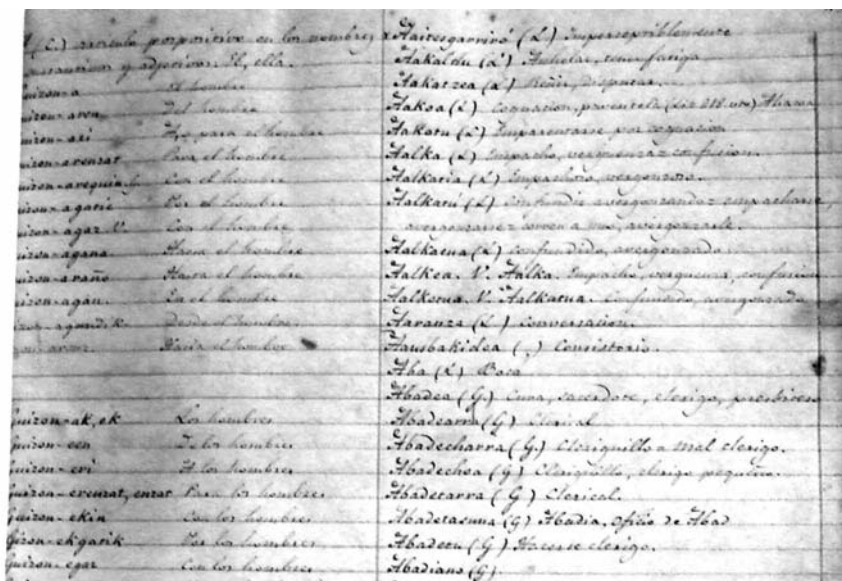 (C.) articulo pospositivo en los nombres
sustantivos y adjetivos. El, ella.
Guizon-a El hombre
Guizon-aren Del hombre
Guizon-ari para el hombre
Guizon-arenzat Para el hombre
Guizon-arequin Con el hombre
Guizon-agatic Por el hombre
Guizon-agaz V. Con el hombre
Guizon-agana Hacia el hombre
Guizon-araño Hasta el hombre
Guizon-agan En el hombre
-agandik Desde el hombre
Hacia el hombre
Guizon-ak, ek Los hombres
Guizon-een De los hombres
Guizon-eri A los hombres
Guizon-erenzat, enzat Para los hombres
Guizon-ekin Con los hombres
Gizon-ekgatik Por los hombres
Guizon-egaz Con los hombres
(L) Imperceptiblemente
Aakaldu (L) Anhelar, tener fatiga
Aakatzea (L) Reñir, disputar.
Aakoa (L) Cognacion, parentela
Aakotu (L) Emparentarse por cognacion
Aalka (L) Empacho, verguenza, confusion.
Aalkatia (L) Empachoso, vergonzoso.
Aalkatu (L) confundir, avergonzar, empacharse,
avergonzarse, avergonzarle.
Aalkatua (L) confundido, avergonzado
Aalkea. V. Aalka. Empacho, verguenza, confusion
Aalkotua. V. Aalkatua. Confundido, avergonzado
Aaranza (L) Conversacion.
Aausbakidea (,) Consistorio.
Aba (L) Boca
Abadea (G.) Cura, sacerdote, clerigo, presbitero
Abadearra (G) Clerical
Abadecharra (G.) Cleriguillo o mal clerigo.
Abadechoa (G) Cleriguillo, clerigo pequeño.
Abadetarra (G) Clerical.
Abadetasuna (G) Abadia, oficio de Abad
Abadetu (G) Hacerse clerigo.
Abadiano (G).